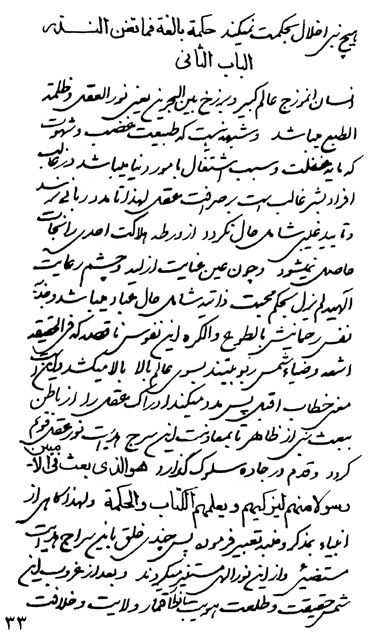 هیچ نبی اخلال بحکمت نمیکند حکمة بالغة فما تغن النذر
الباب الثانی
انسان انموزج عالم کبیر و برزخ بین البحرین یعنی نور العقل و ظلمة
الطبع میباشد و شبهه نیست که طبیعت غضب و شهوت
که مایه غفلت و سبب اشتغال بامور دنیا میباشد در غالب
افراد بشر غالب است بر صرافت عقل لهذا تا مدد ربانی نرسد
و تایید غیبی شامل حال نگردد از ورطه هلاکت احدی را نجات
حاصل نمیشود و چون عین عنایت ازلیه و چشم رعایت
الهیه لم یزل بحکم محبت ذاتیه شامل حال عباد میباشد
نفس رحمانیش بالطوع و الکره این نفوس ناقصه که فی الحقیقه
اشعه و ضیاء شمس ربوبیتند بسوی عالم بالا بالا میکشد و اینست
معنی خطاب اقبل پس مدد میکند ادراک عقلی را از باطن
ببعث نبی از ظاهر تا بمعاونت این سرج هدایت نور عقل قوی
گردد و قدم در جاده سلوک گذارد هو الذی بعث فی الامیین
رسولا منهم لیزکیهم و یعلمهم الکتاب و الحکمة و لهذا گاهی از
انبیاء بمذکر و منبه تعبیر فرموده پس چندی خلق باین سراج هدایت
مستضیئی و از این نور الهی مستنیر میگردند و بعد از غروب این
شمس حقیقت و طلعت هویت باقمار ولایت و خلافت
۳۳